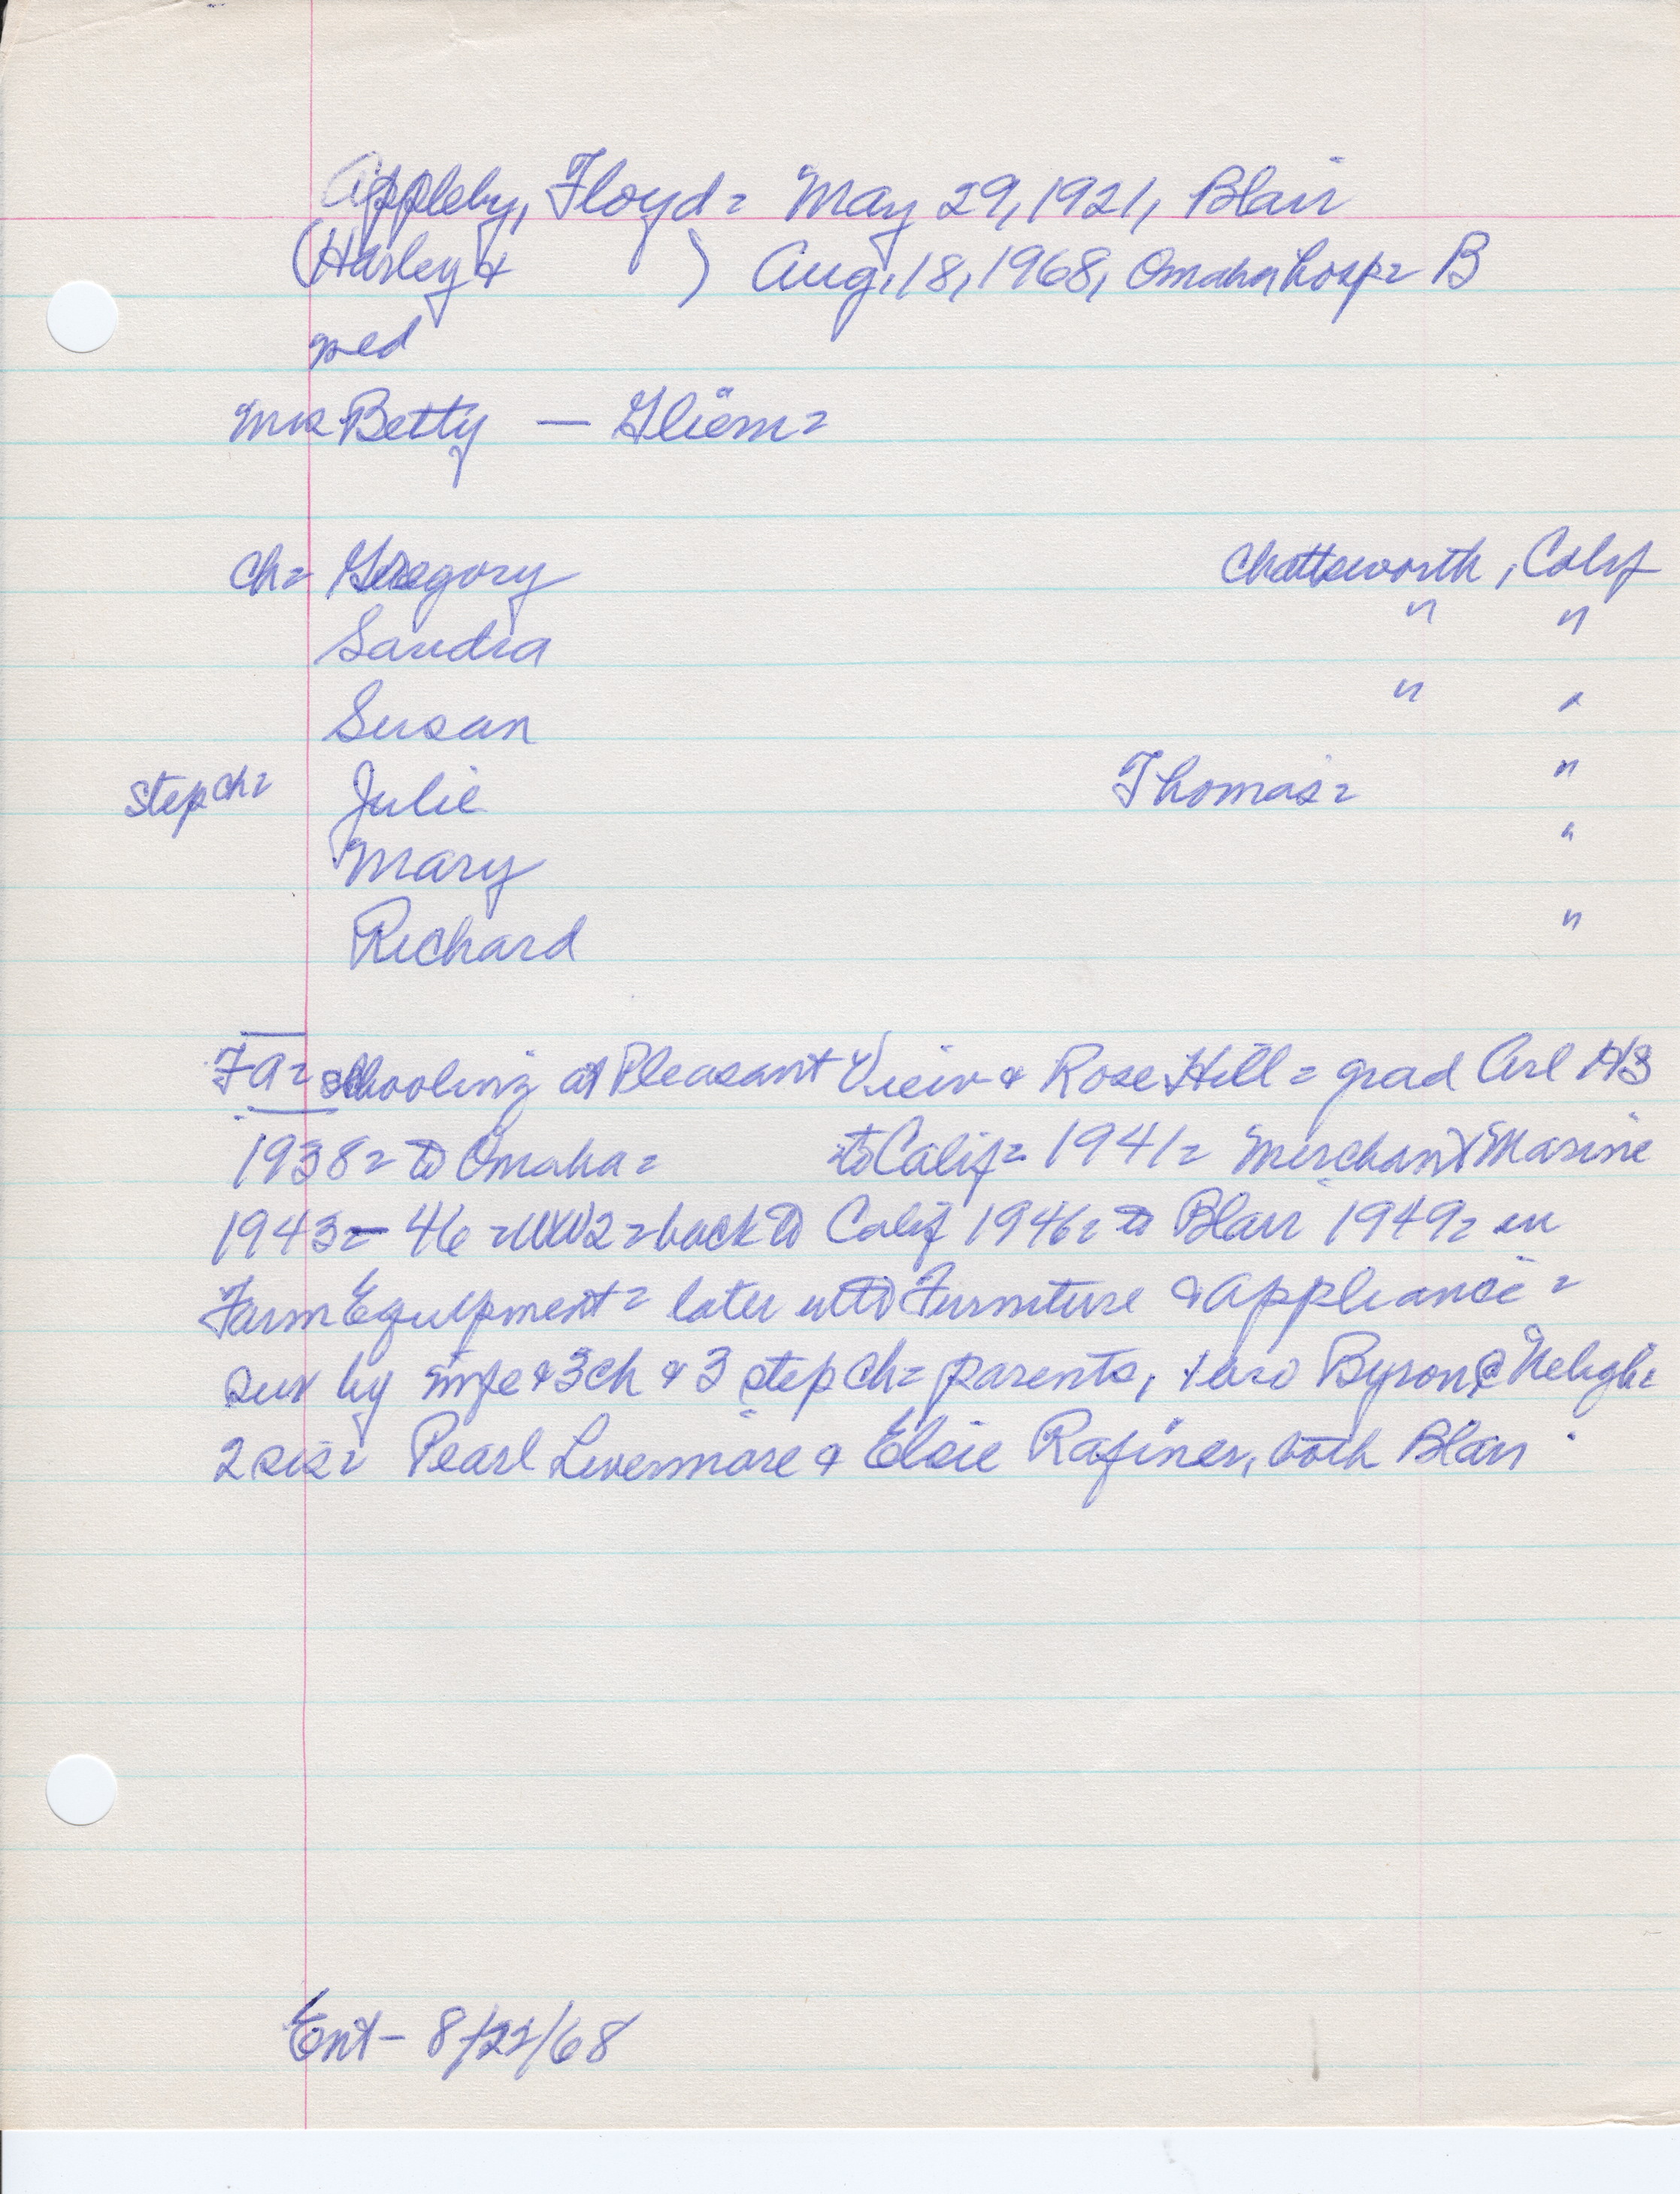 Appleby, Floyd = May 29, 1921, Blair
(Harley & ) Aug, 18, 1968, Omaha hosp = B
med
Mrs Betty — Gliem =
ch = Gregory Chattsworth, Calif
Sandra " "
Susan " "
Step ch = Julie Thomas = "
Mary "
Richard "
FA = schooling at Pleasant View & Rose Hill = grad Arl HS
1938 = to Omaha = to Calif = 1941 = Merchant Marine
1943 - 46 = WW2 = back to Calif 1946 = to Blair 1949 = in
Farm Equipment = later into Furniture & appliance =
sur by wife & 3 ch & 3 step ch = parents, 1 bro Byron @ Neligh =
2 sis = Pearl Livermore & Elsie Rafiner, both Blair
Ent - 8/22/68